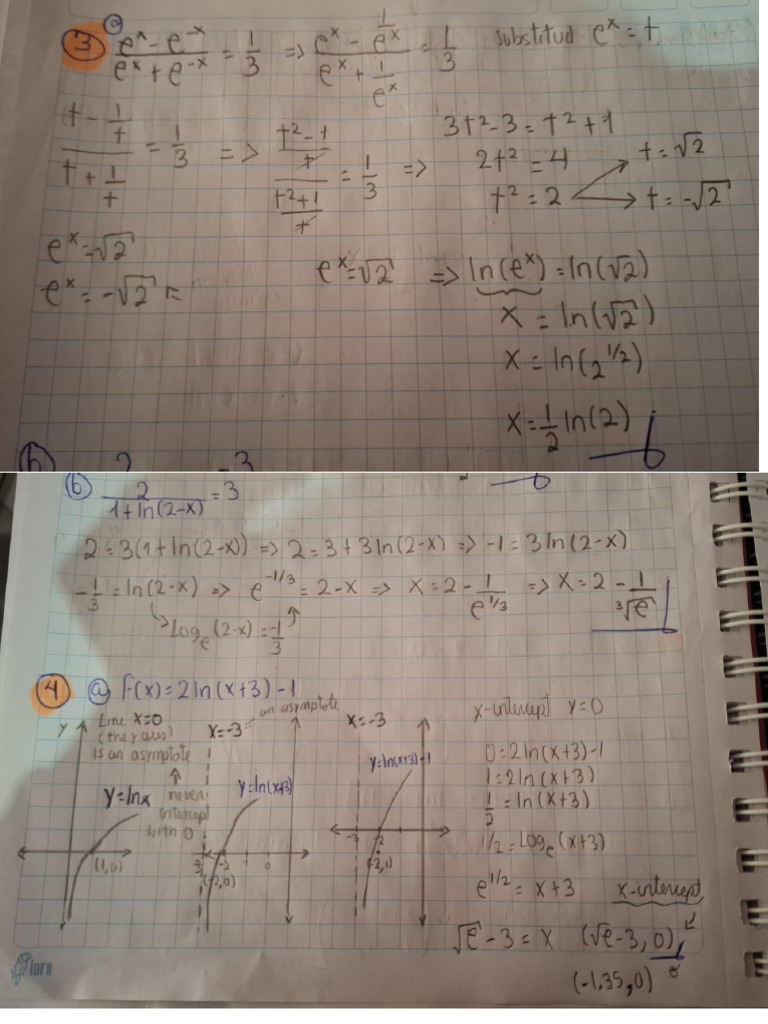 3 a) (e^x - e^-x)/(e^x + e^-x) = 1/3 => (e^x - 1/e^x)/(e^x + 1/e^x) = 1/3 substitud e^x = t
(t - 1/t)/(t + 1/t) = 1/3 => ((t²-1)/t)/((t²+1)/t) = 1/3 => 3t²-3 = t²+1
2t² = 4
t² = 2 → t = √2
→ t = -√2
e^x = √2
e^x = -√2
e^x = √2 => ln(e^x) = ln(√2)
x = ln(√2)
x = ln(2^1/2)
x = 1/2 ln(2)
b) 2/(1+ln(2-x)) = 3
2 = 3(1+ln(2-x)) => 2 = 3+3ln(2-x) => -1 = 3ln(2-x)
-1/3 = ln(2-x) => e^-1/3 = 2-x => x = 2 - 1/e^1/3 => x = 2 - 1/³√e
Log_e(2-x) = -1/3
4 a) f(x) = 2ln(x+3)-1
Line x=0
(the y axis)
is an asymptote
never
intercept
with 0
y
y=lnx
(1,0)
x=-3 = an asymptote
y=ln(x+3)
-3 -2 -1 0
(-2,0)
x=-3
y=ln(x+3)-1
-3 -2
(-2,1)
x-intercept y=0
0=2ln(x+3)-1
1=2ln(x+3)
1/2 = ln(x+3)
1/2 = Log_e(x+3)
e^1/2 = x+3 x-intercept
√e - 3 = x (√e-3, 0)
(-1.35, 0)
loro